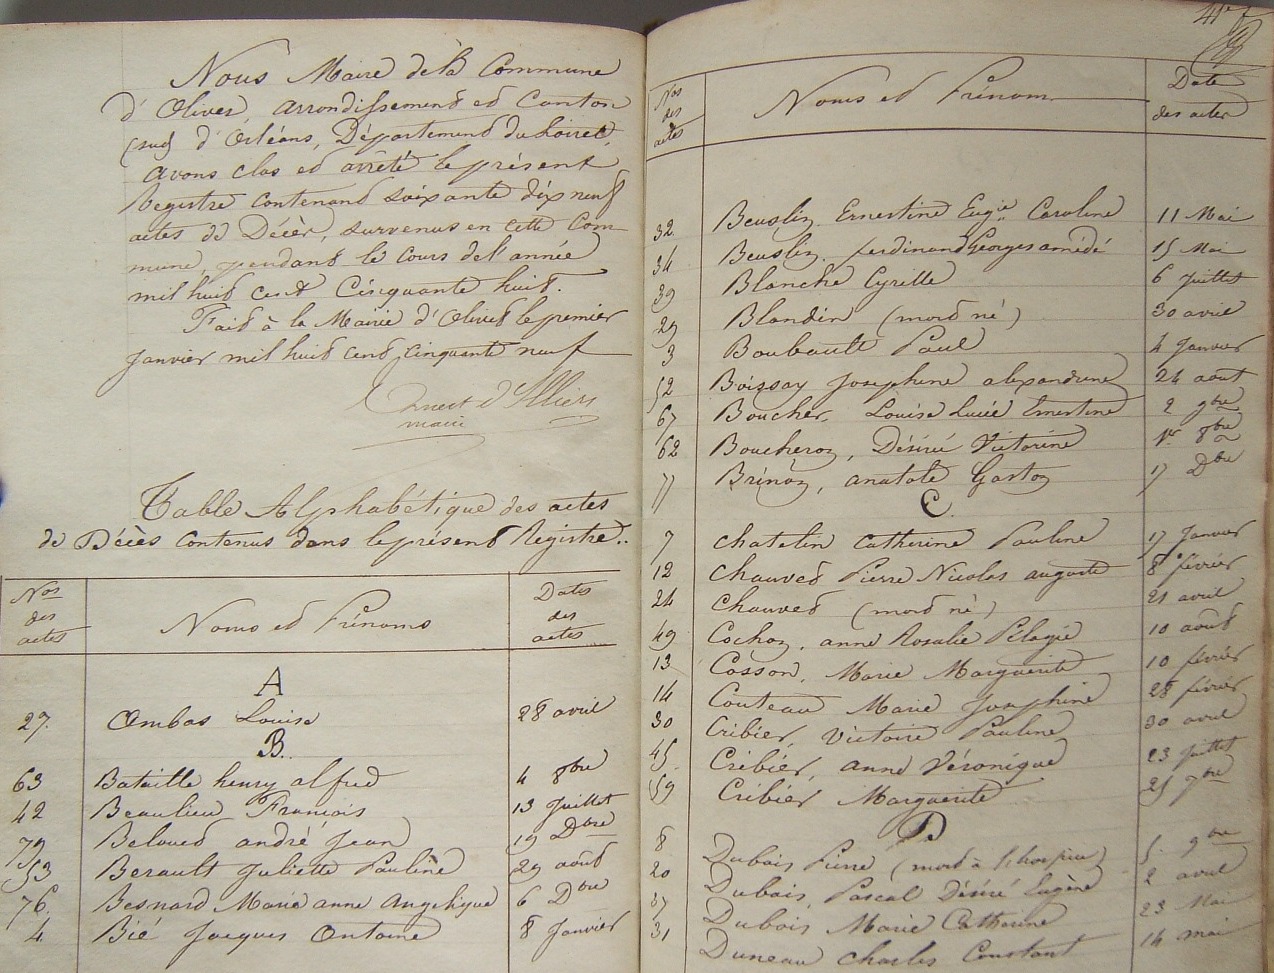 Nous Maire de la Commune
d'Olivet, arrondissement et Canton
(sud) d'Orléans, Département du Loiret,
avons clos et arrêté le présent
Registre contenant soixante dix neuf
actes de Décès, survenus en cette Com-
mune, pendant le cours de l'année
mil huit cent Cinquante huit.
Fait à la Mairie d'Olivet le premier
Janvier mil huit cent cinquante neuf
Ernest d'Illiers
maire
Table Alphabétique des actes
de Décès contenus dans le présent Registre..
Nos des actes Noms et Prénoms Dates des actes
A
27. Ambas Louise 28 avril
B.
63 Bataille henry alfred 4 8bre
42 Beaulieu François 13 Juillet
79 Beloued andré Jean 19 Dbre
53 Berault Juliette Pauline 29 août
76. Besnard Marie anne Angelique 6 Dbre
4. Bié Jacques Antoine 8 Janvier
Nos des actes Noms et Prénom Date des actes
32. Beuslin Ernestine Eugie Caroline 11 Mai
34 Beuslin ferdinand Georges amédé 15 Mai
39 Blanche Cyrille 6 Juillet
29 Blandin (mort né) 30 avril
3 Boubault Paul 4 Janvier
52 Boissay Josephine alexandrine 24 août
67 Boucher, Louise Lucie Ernestine 2 9bre
62 Boucheron, Désiré Victorine 1er 8bre
77 Brinon, anatole Gaston 17 Dbre
C.
7 Chatelin Catherine Pauline 17 Janvier
12 Chauved Pierre Nicolas auguste 8 février
24 Chauved (mord né) 21 avril
49 Cochon, anne Rosalie Pélagie 10 août
13 Cosson, Marie Marguerite 10 février
14 Couteau Marie Josephine 28 février
30 Cribier, Victoire Pauline 30 avril
45. Cribier, anne Véronique 23 Juillet
59 Cribier Marguerite 25 7bre
D
8 Dubois Pierre (mord à l'hospice) 5. 9bre
20 Dubois, Pascal Désiré Eugène 2 avril
37 Dubois Marie Catherine 23 Mai
31 Duneau Charles Constant 14 mai